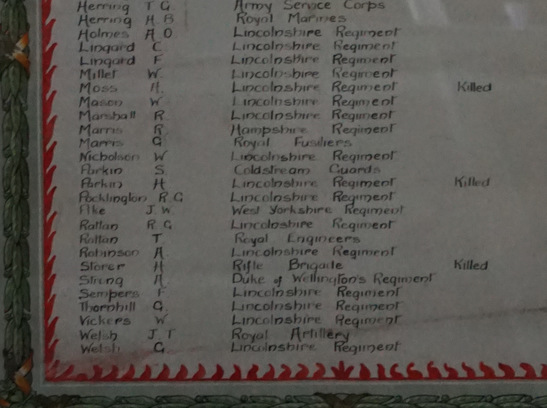 Herring T G Army Service Corps
Herring H B Royal Marines
Holmes A O Lincolnshire Regiment
Lingard C. Lincolnshire Regiment
Lingard F Lincolnshire Regiment
Millet W. Lincolnshire Regiment
Moss H. Lincolnshire Regiment Killed
Mason W Lincolnshire Regiment
Marshall R. Lincolnshire Regiment
Marris R. Hampshire Regiment
Marris G Royal Fusiliers
Nicholson W Lincolnshire Regiment
Parkin S Coldstream Guards
Parkin H Lincolnshire Regiment Killed
Pocklington R.G Lincolnshire Regiment
Pike J.W West Yorkshire Regiment
Rattan R.G Lincolnshire Regiment
Rattan T Royal Engineers
Robinson A Lincolnshire Regiment
Storer H Rifle Brigade Killed
Strong A Duke of Wellington's Regiment
Sempers F Lincolnshire Regiment
Thornhill G. Lincolnshire Regiment
Vickers W. Lincolnshire Regiment
Welsh J.T Royal Artillery
Welsh G Lincolnshire Regiment